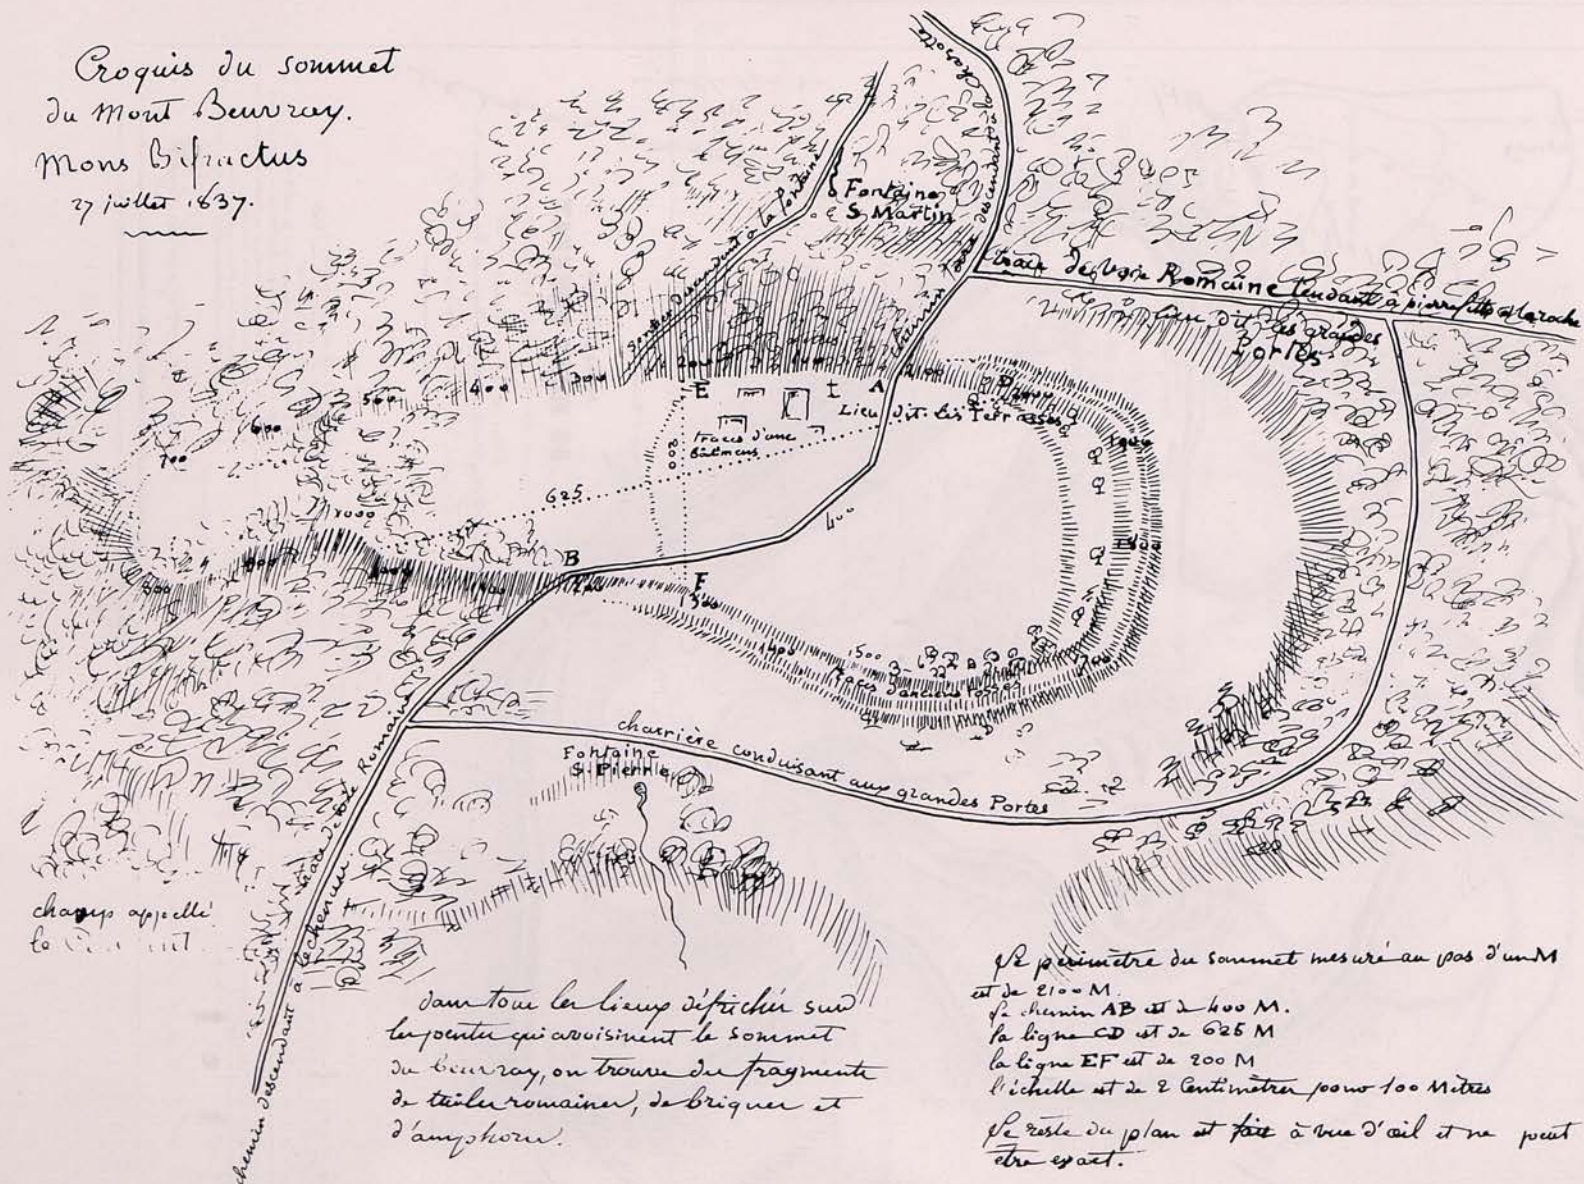 Croquis du sommet
du Mont Beuvray.
Mons Bifractus
27 juillet 1837.
sentier descendant à la fontaine
Fontaine
S Martin
chemin descendant
trace de voie Romaine tendant à pierrefitte et Laroche
lieu dit les grandes
Portes
E
I
A
Lieu dit les Terrasses
traces d'anc
bâtimens
200
625
400
B
F
D
100
200
300
400
500
600
700
800
1000
1300
1400
1500
traces d'anciens fossés
charrière conduisant aux grandes Portes
Fontaine
S. Pierre
trace de voie Romaine
chemin descendant à Léchenau
champ appellé
le
dans tous les lieux défrichés sur
les pentes qui avoisinent le sommet
du beuvray, on trouve des fragments
de tuiles romaines, de briques et
d'amphores.
Le périmètre du sommet mesuré au pas d'un M
est de 2100 M.
Le chemin AB est de 400 M.
la ligne CD est de 625 M
la ligne EF est de 200 M
l'échelle est de 2 Centimètres pour 100 Mètres
Le reste du plan est fait à vue d'œil et ne peut
etre exact.